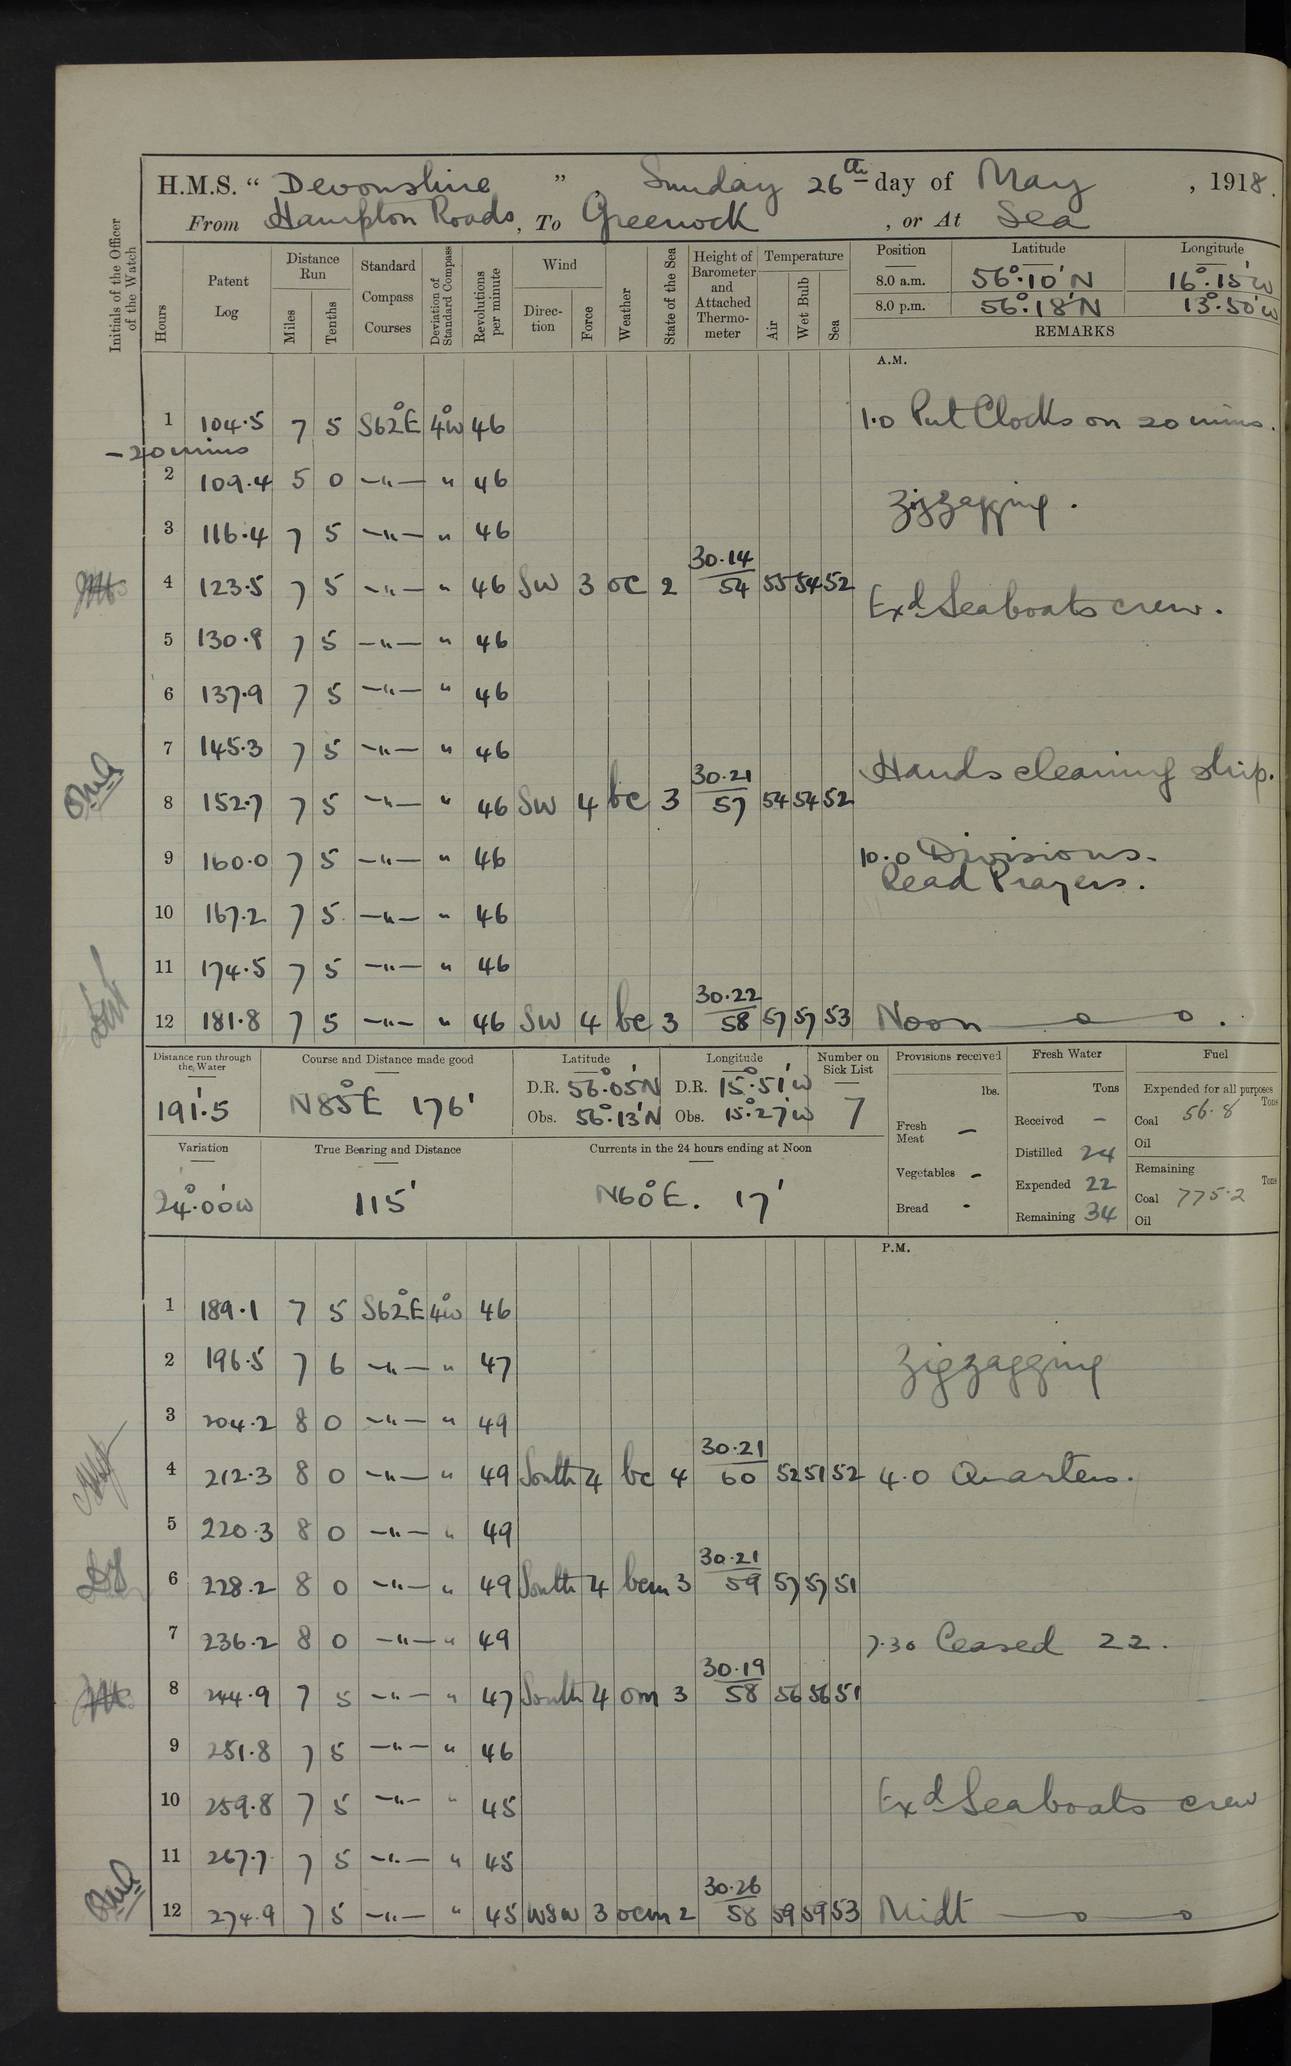 H.M.S. “ Devonshire ” , Sunday 26th day of May , 1918.
From Hampton Roads, To Greenock , or At Sea
Initials of the Officer of the Watch
Hours
Patent Log
Distance Run
Miles
Tenths
Standard Compass Courses
Deviation of Standard Compass
Revolutions per minute
Wind
Direction
Force
Weather
State of the Sea
Height of Barometer and Attached Thermometer
Temperature
Air
Wet Bulb
Sea
Position Latitude Longitude
8.0 a.m. 56°·10′N 16°·15′W
8.0 p.m. 56°·18′N 13°·50′W
REMARKS
A.M.
1 104·5 7 5 S62°E 4°W 46 1·0 Put Clocks on 20 mins.
-20 mins
2 109·4 5 0 —"— " 46
Zigzagging.
3 116·4 7 5 —"— " 46
4 123·5 7 5 —"— " 46 SW 3 oc 2 30·14/54 55 54 52
Exd Seaboats crew.
5 130·9 7 5 —"— " 46
6 137·9 7 5 —"— " 46
7 145·3 7 5 —"— " 46
Hands cleaning ship.
8 152·7 7 5 —"— " 46 SW 4 bc 3 30·21/57 54 54 52
9 160·0 7 5 —"— " 46 10·0 Divisions.
Read Prayers.
10 167·2 7 5 —"— " 46
11 174·5 7 5 —"— " 46
12 181·8 7 5 —"— " 46 SW 4 bc 3 30·22/58 57 57 53 Noon —o—o.
Distance run through the Water
191·5
Course and Distance made good
N85°E 176′
Latitude
D.R. 56°·05′N
Obs. 56°·13′N
Longitude
D.R. 15°·51′W
Obs. 15°·27′W
Number on Sick List
7
Provisions received
lbs.
Fresh Meat –
Vegetables –
Bread -
Fresh Water
Tons
Received –
Distilled 24
Expended 22
Remaining 34
Fuel
Expended for all purposes
Tons
Coal 56·8
Oil
Remaining
Tons
Coal 775·2
Oil
Variation
24°·00′W
True Bearing and Distance
115′
Currents in the 24 hours ending at Noon
N60°E. 17′
P.M.
1 189·1 7 5 S62°E 4°W 46
2 196·5 7 6 —"— " 47 Zigzagging
3 204·2 8 0 —"— " 49
4 212·3 8 0 —"— " 49 South 4 bc 4 30·21/60 52 51 52 4·0 Quarters.
5 220·3 8 0 —"— " 49
6 228·2 8 0 —"— " 49 South 4 bcm 3 30·21/59 57 57 51
7 236·2 8 0 —"— " 49 7·30 Ceased ZZ.
8 244·9 7 5 —"— " 47 South 4 om 3 30·19/58 56 56 51
9 251·8 7 5 —"— " 46
10 259·8 7 5 —"— " 45 Exd Seaboats crew
11 267·7 7 5 —"— " 45
12 274·9 7 5 —"— " 45 WSW 3 ocm 2 30·26/58 59 59 53 Midt —o—o